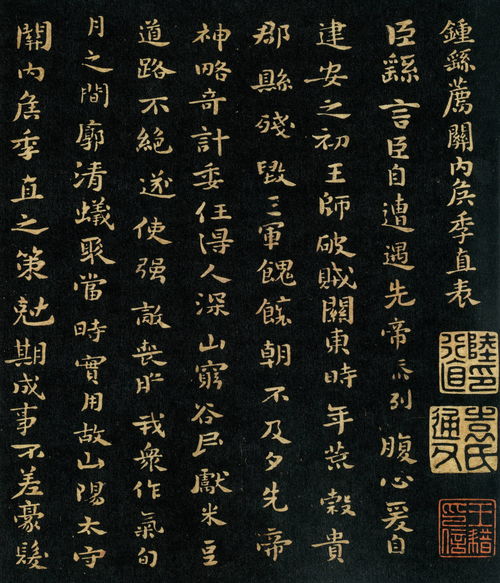 鍾繇薦關內侯季直表
臣繇言臣自遭遇先帝忝列腹心爰自
建安之初王師破賊關東時年荒穀貴
郡縣殘毀三軍餽饟朝不及夕先帝
神略奇計委任得人深山窮谷民獻米豆
道路不絕遂使强敵喪膽我衆作氣旬
月之間廓清蟻聚當時實用故山陽太守
關內侯季直之策尅期成事不差豪髮
陸行直印
袁氏通父